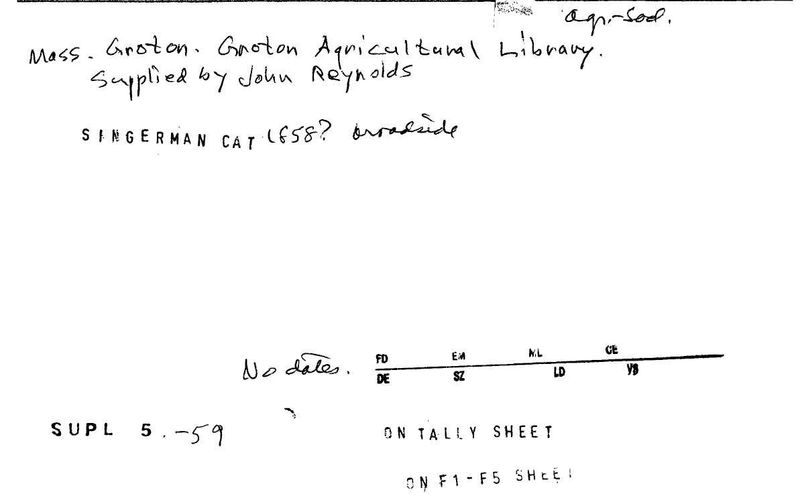 agr.-soc.
Mass. Groton. Groton Agricultural Library.
Supplied by John Reynolds
SINGERMAN CAT 1858? broadside
No dates.
FD EM ML CE
DE SZ LD VB
SUPL 5.-59
ON TALLY SHEET
ON F1-F5 SHEET